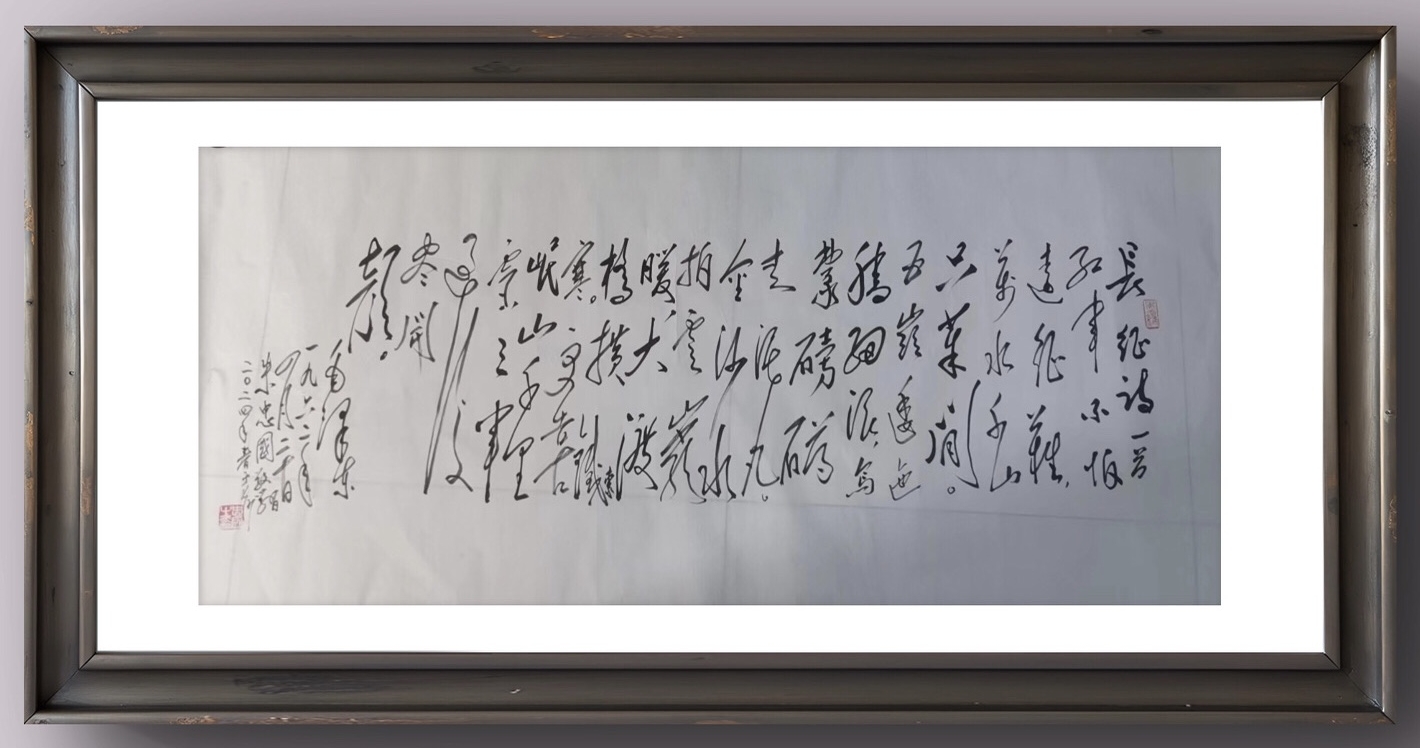 長征詩一首
紅軍不怕
遠征難,
萬水千山
只等閒。
五嶺逶迤
騰細浪,烏
蒙磅礴
走泥丸。
金沙水
拍雲崖
暖大渡
橋橫鐵索
寒。更喜
岷山千里
雪三軍
過後
盡開
顏。
毛澤東
一九六二年
四月二十日
朱忠國敬
二〇二四年